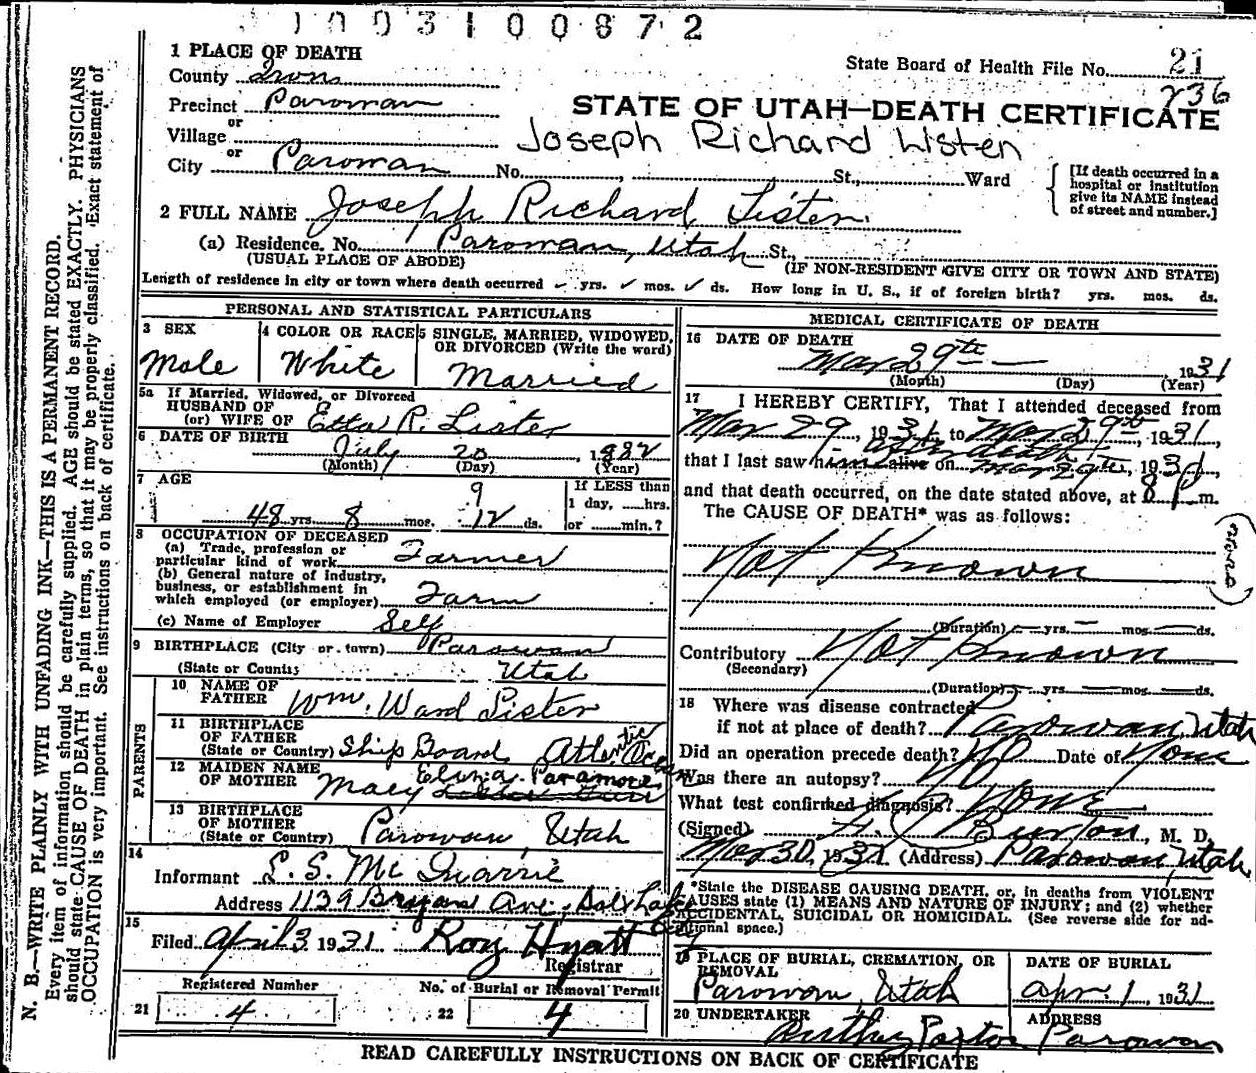 1003100872
1 PLACE OF DEATH
State Board of Health File No. 21
236
County Iron
Precinct Parowan
STATE OF UTAH—DEATH CERTIFICATE
or
Village
Joseph Richard Lister
or
City Parowan No. , St., Ward
[If death occurred in a hospital or institution give its NAME instead of street and number.]
2 FULL NAME Joseph Richard Lister
(a) Residence. No. Parowan, Utah St.,
(USUAL PLACE OF ABODE) (IF NON-RESIDENT GIVE CITY OR TOWN AND STATE)
Length of residence in city or town where death occurred yrs. mos. ds. How long in U. S., if of foreign birth? yrs. mos. ds.
PERSONAL AND STATISTICAL PARTICULARS
3 SEX 4 COLOR OR RACE 5 SINGLE, MARRIED, WIDOWED, OR DIVORCED (Write the word)
Male White Married
5a If Married, Widowed, or Divorced
HUSBAND OF
(or) WIFE OF Etta R. Lister
6 DATE OF BIRTH July 20, 1882
(Month) (Day) (Year)
7 AGE
48 yrs. 8 mos. 9 12 ds.
If LESS than
1 day, hrs.
or min.?
8 OCCUPATION OF DECEASED
(a) Trade, profession or
particular kind of work Farmer
(b) General nature of industry,
business, or establishment in
which employed (or employer) Farm
(c) Name of Employer Self
9 BIRTHPLACE (City or town) Parowan
(State or County) Utah
PARENTS
10 NAME OF FATHER Wm. Ward Lister
11 BIRTHPLACE OF FATHER
(State or Country) Ship Board Atlantic Ocean
12 MAIDEN NAME OF MOTHER Mary Eliza Paramore
13 BIRTHPLACE OF MOTHER
(State or Country) Parowan, Utah
14
Informant L. S. McQuarrie
Address 1139 Bryan Ave. Salt Lake City
15
Filed April 3 1931 Roy Hyatt
Registrar
Registered Number No. of Burial or Removal Permit
21 4 22 4
MEDICAL CERTIFICATE OF DEATH
16 DATE OF DEATH
Mar 29th 1931
(Month) (Day) (Year)
17 I HEREBY CERTIFY, That I attended deceased from
Mar 29, 1931, to Mar 29th, 1931,
that I last saw him alive on after death Mar 29th, 1931,
and that death occurred, on the date stated above, at 8 m.
The CAUSE OF DEATH* was as follows:
Not Known
(Duration) yrs. mos. ds.
Contributory Not Known
(Secondary)
(Duration) yrs. mos. ds.
18 Where was disease contracted
if not at place of death? Parowan, Utah
Did an operation precede death? No Date of None
Was there an autopsy? No
What test confirmed diagnosis? None
(Signed) Burton, M. D.
Mar 30, 1931 (Address) Parowan, Utah
*State the DISEASE CAUSING DEATH, or, in deaths from VIOLENT
CAUSES state (1) MEANS AND NATURE OF INJURY; and (2) whether
ACCIDENTAL, SUICIDAL OR HOMICIDAL. (See reverse side for additional space.)
19 PLACE OF BURIAL, CREMATION, OR REMOVAL DATE OF BURIAL
Parowan, Utah Apr. 1, 1931
20 UNDERTAKER ADDRESS
Parowan
READ CAREFULLY INSTRUCTIONS ON BACK OF CERTIFICATE
N. B.—WRITE PLAINLY WITH UNFADING INK—THIS IS A PERMANENT RECORD.
Every item of information should be carefully supplied. AGE should be stated EXACTLY. PHYSICIANS
should state CAUSE OF DEATH in plain terms, so that it may be properly classified. Exact statement of
OCCUPATION is very important. See instructions on back of certificate.